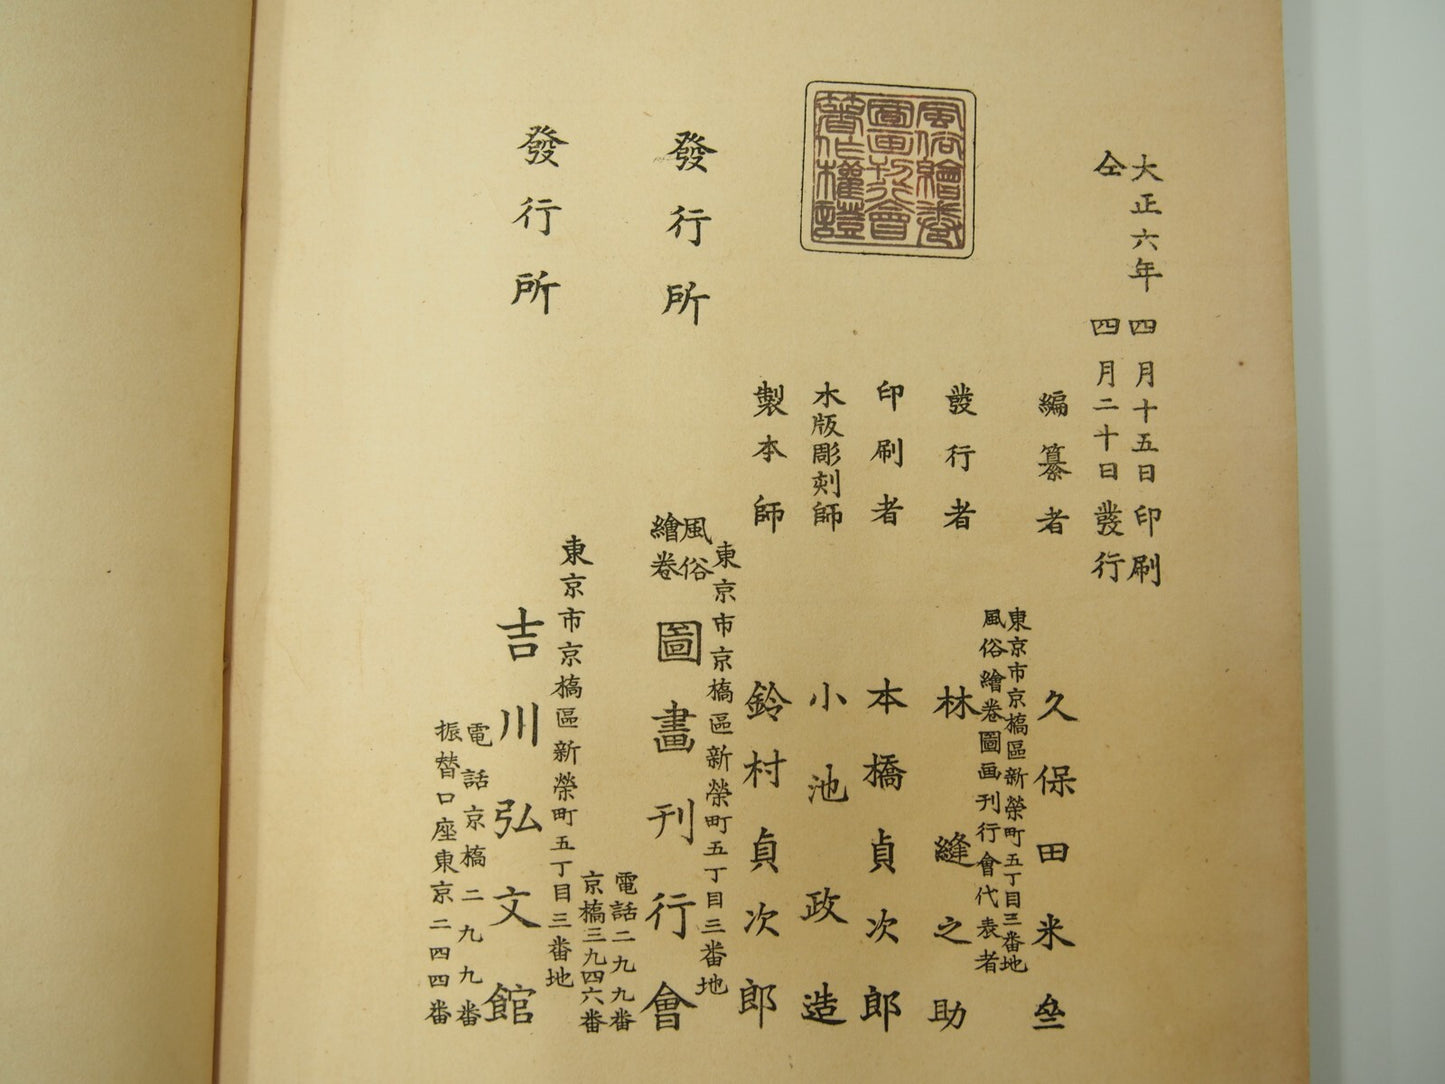 大正六年四月十五日印刷
仝四月二十日發行
編纂者 久保田米
東京市京橋區新榮町五丁目三番地
風俗繪卷圖画刊行會代表者
發行者 林縫之助
印刷者 本橋貞次郎
木版彫刻師 小池政造
製本師 鈴村貞次郎
風俗繪卷圖画刊行會著作權證
東京市京橋區新榮町五丁目三番地
發行所 風俗繪卷圖畫刊行會
電話二九九番
京橋三九四六番
東京市京橋區新榮町五丁目三番地
發行所 吉川弘文館
電話京橋二九九番
振替口座東京二四四番